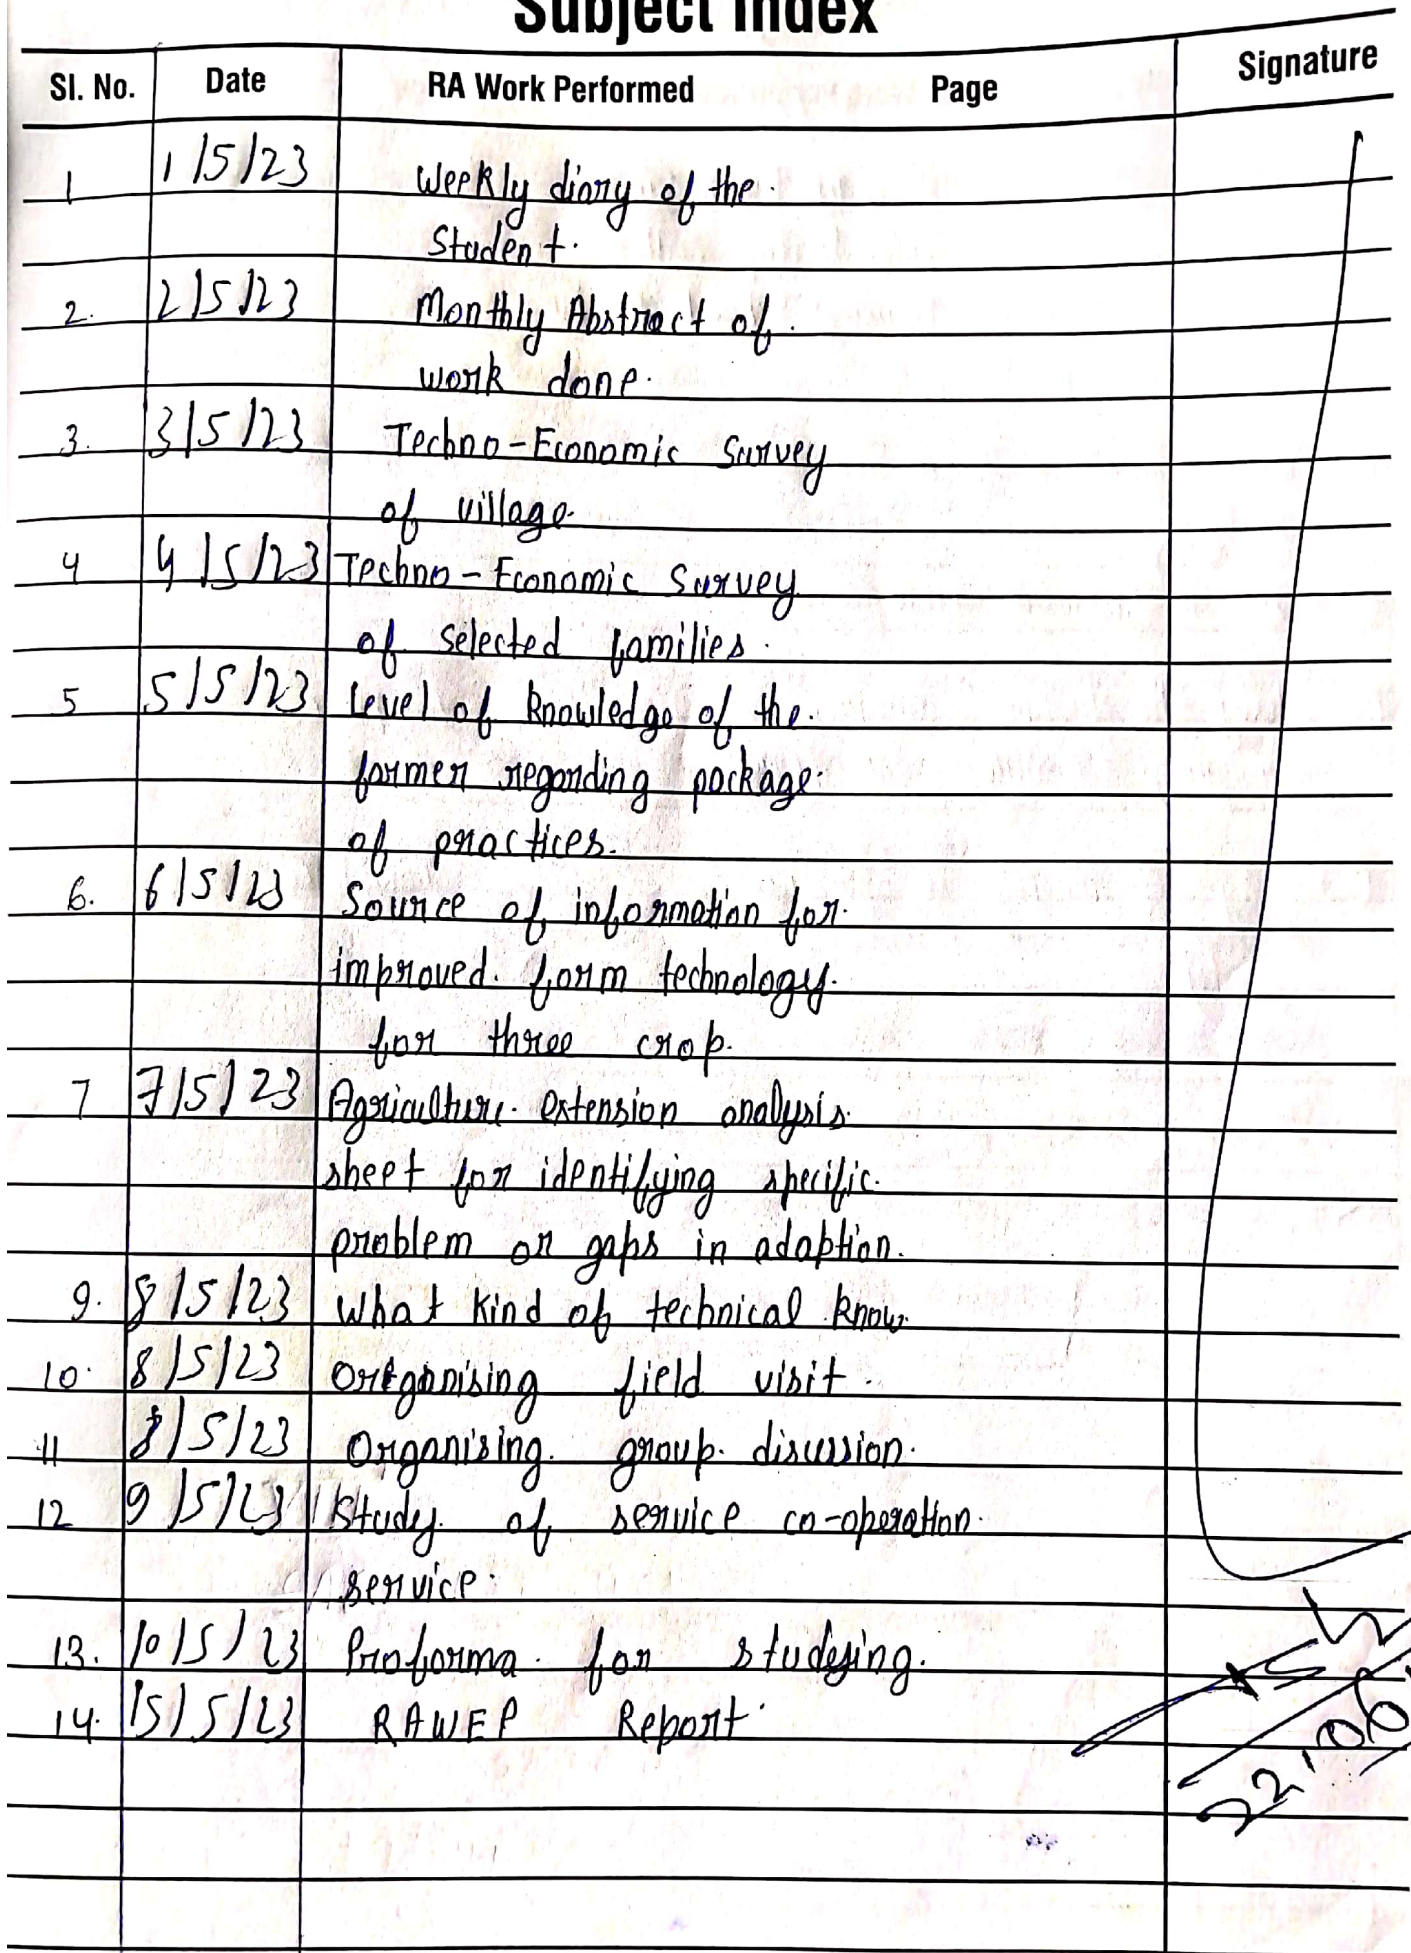 Subject Index
Sl. No. Date RA Work Performed Page Signature
1 1/5/23 Weekly diary of the
Student.
2. 2/5/23 Monthly Abstract of
work done.
3. 3/5/23 Techno-Economic Survey
of village.
4 4/5/23 Techno-Economic Survey
of selected families.
5 5/5/23 Level of knowledge of the
farmer regarding package
of practices.
6. 6/5/23 Source of information for
improved farm technology
for three crop.
7 7/5/23 Agriculture extension analysis
sheet for identifying specific
problem or gaps in adaption.
9. 8/5/23 What kind of technical know
10. 8/5/23 Organising field visit
11 8/5/23 Organising group discussion.
12 9/5/23 Study of service co-operation
service.
13. 10/5/23 Proforma for studesing.
14. 15/5/23 RAWEP Report
22.06.